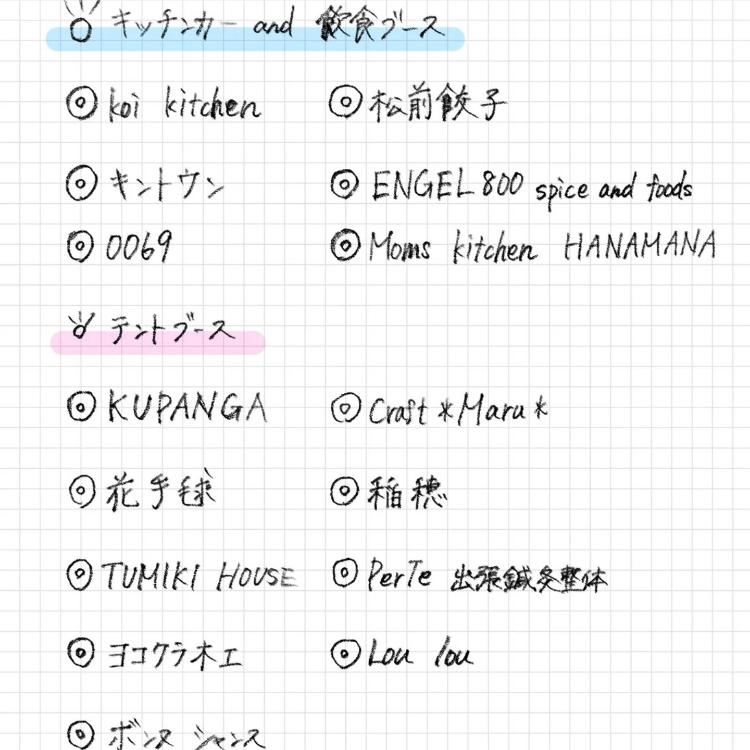 キッチンカー and 飲食ブース
◎ koi kitchen ◎ 松前餃子
◎ キントウン ◎ ENGEL800 spice and foods
◎ 0069 ◎ Moms kitchen HANAMANA
テントブース
◎ KUPANGA ◎ Craft *Maru*
◎ 花手毬 ◎ 稲穂
◎ TUMIKI HOUSE ◎ PerTe 出張鍼灸整体
◎ ヨコクラ木工 ◎ Lou lou
◎ ボンヌ シャンス